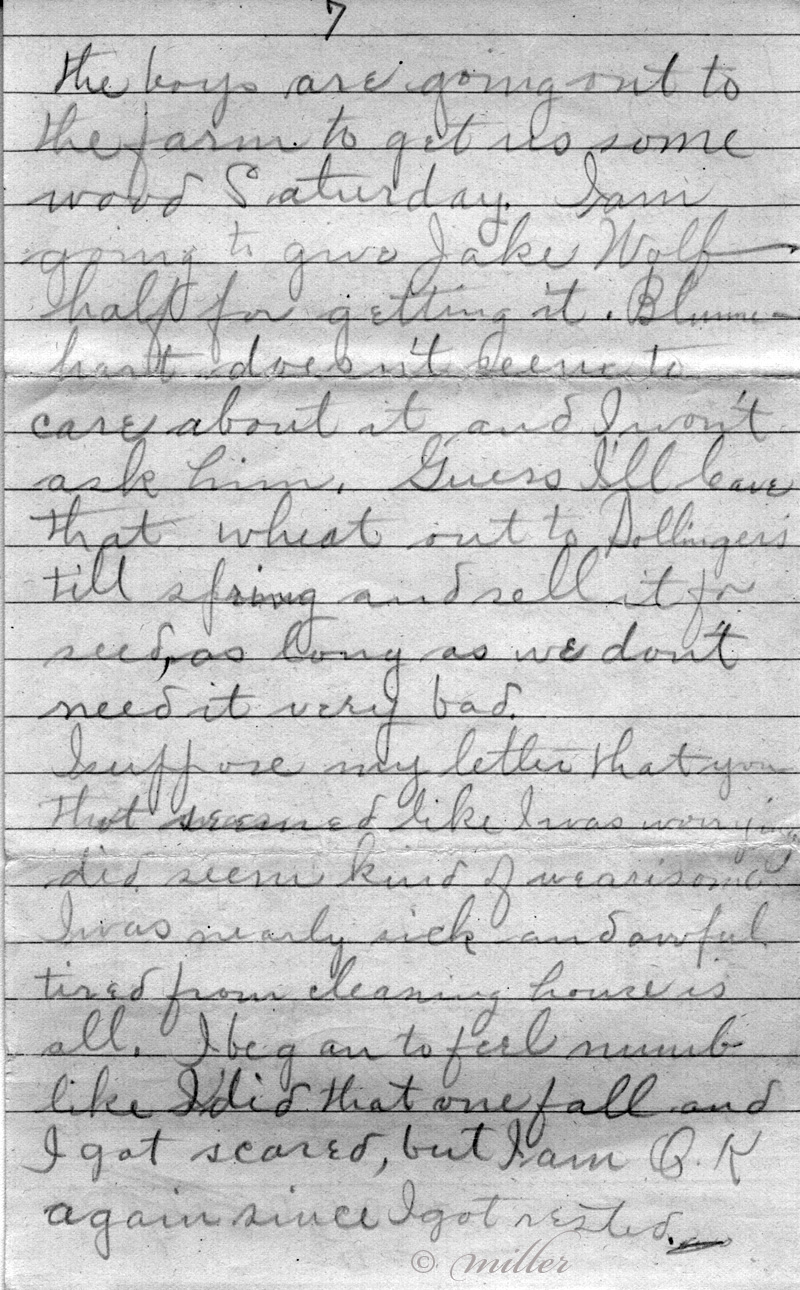 7
the boys are going out to
the farm to get us some
wood Saturday. I am
going to give Jake Wolf
half for getting it. Blume-
hart doesn't seem to
care about it and I won't
ask him. Guess I'll leave
that wheat out to Dollingers
till spring and sell it for
seed, as long as we don't
need it very bad.
I suppose my letter that you
that seemed like I was worrying
did seem kind of wearisome
I was nearly sick and awful
tired from cleaning house is
all. I began to feel numb
like I did that one fall and
I got scared, but I am O.K
again since I got rested.
© miller